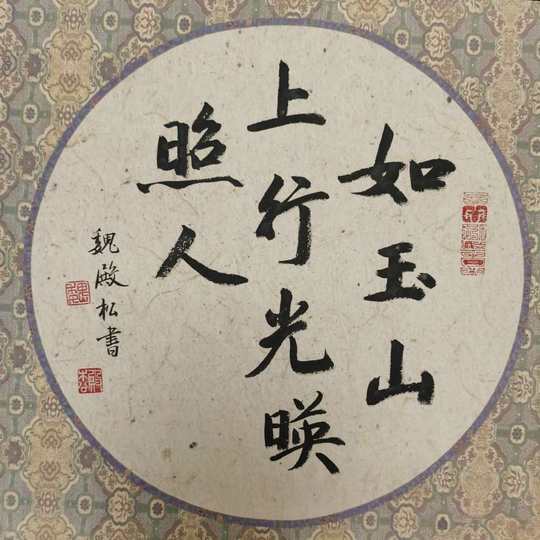 如玉山
上行光暎
照人
魏殿松書